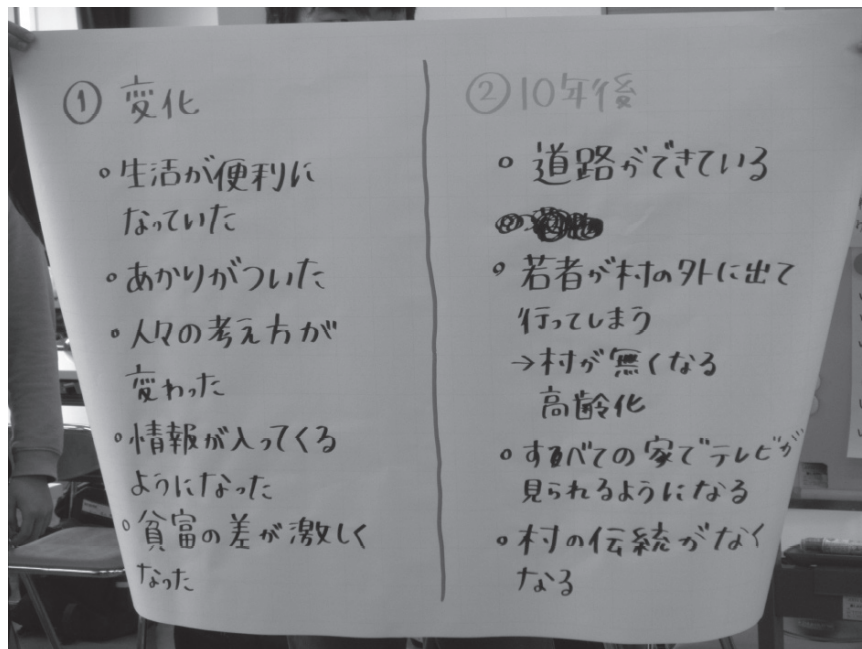 ① 変化
。生活が便利に
なっていた
。あかりがついた
。人々の考え方が
変わった
。情報が入ってくる
ようになった
。貧富の差が激しく
なった
② 10年後
。道路ができている
。若者が村の外に出て
行ってしまう
→村が無くなる
高齢化
。すべての家でテレビが
見られるようになる
。村の伝統がなく
なる